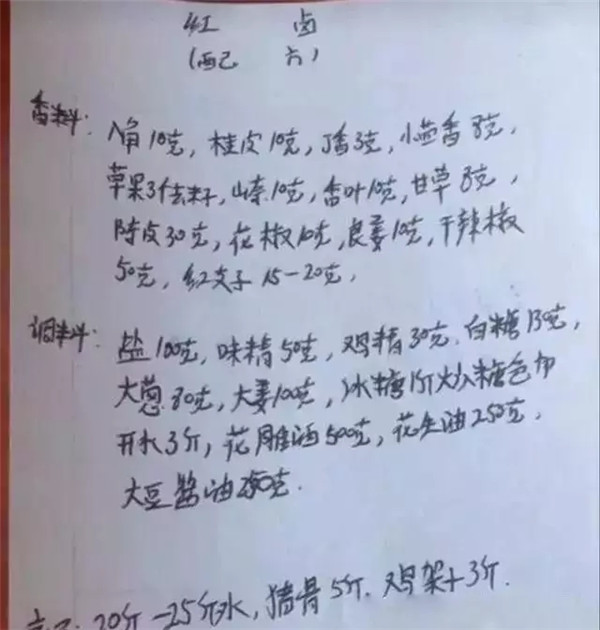 红 卤
(配己 六)
香料: 八角10克, 桂皮10克, 丁香3克, 小茴香8克,
草果3个去籽, 山奈10克, 香叶10克, 甘草8克,
陈皮30克, 花椒10克, 良姜10克, 干辣椒
50克, 红支子15-20克,
调料: 盐100克, 味精50克, 鸡精30克, 白糖130克,
大葱80克, 大姜100克, 冰糖1斤火么糖色加
开水3斤, 花雕酒500克, 花生油250克,
大豆酱油250克.
20斤-25斤水, 猪骨5斤. 鸡架+3斤.